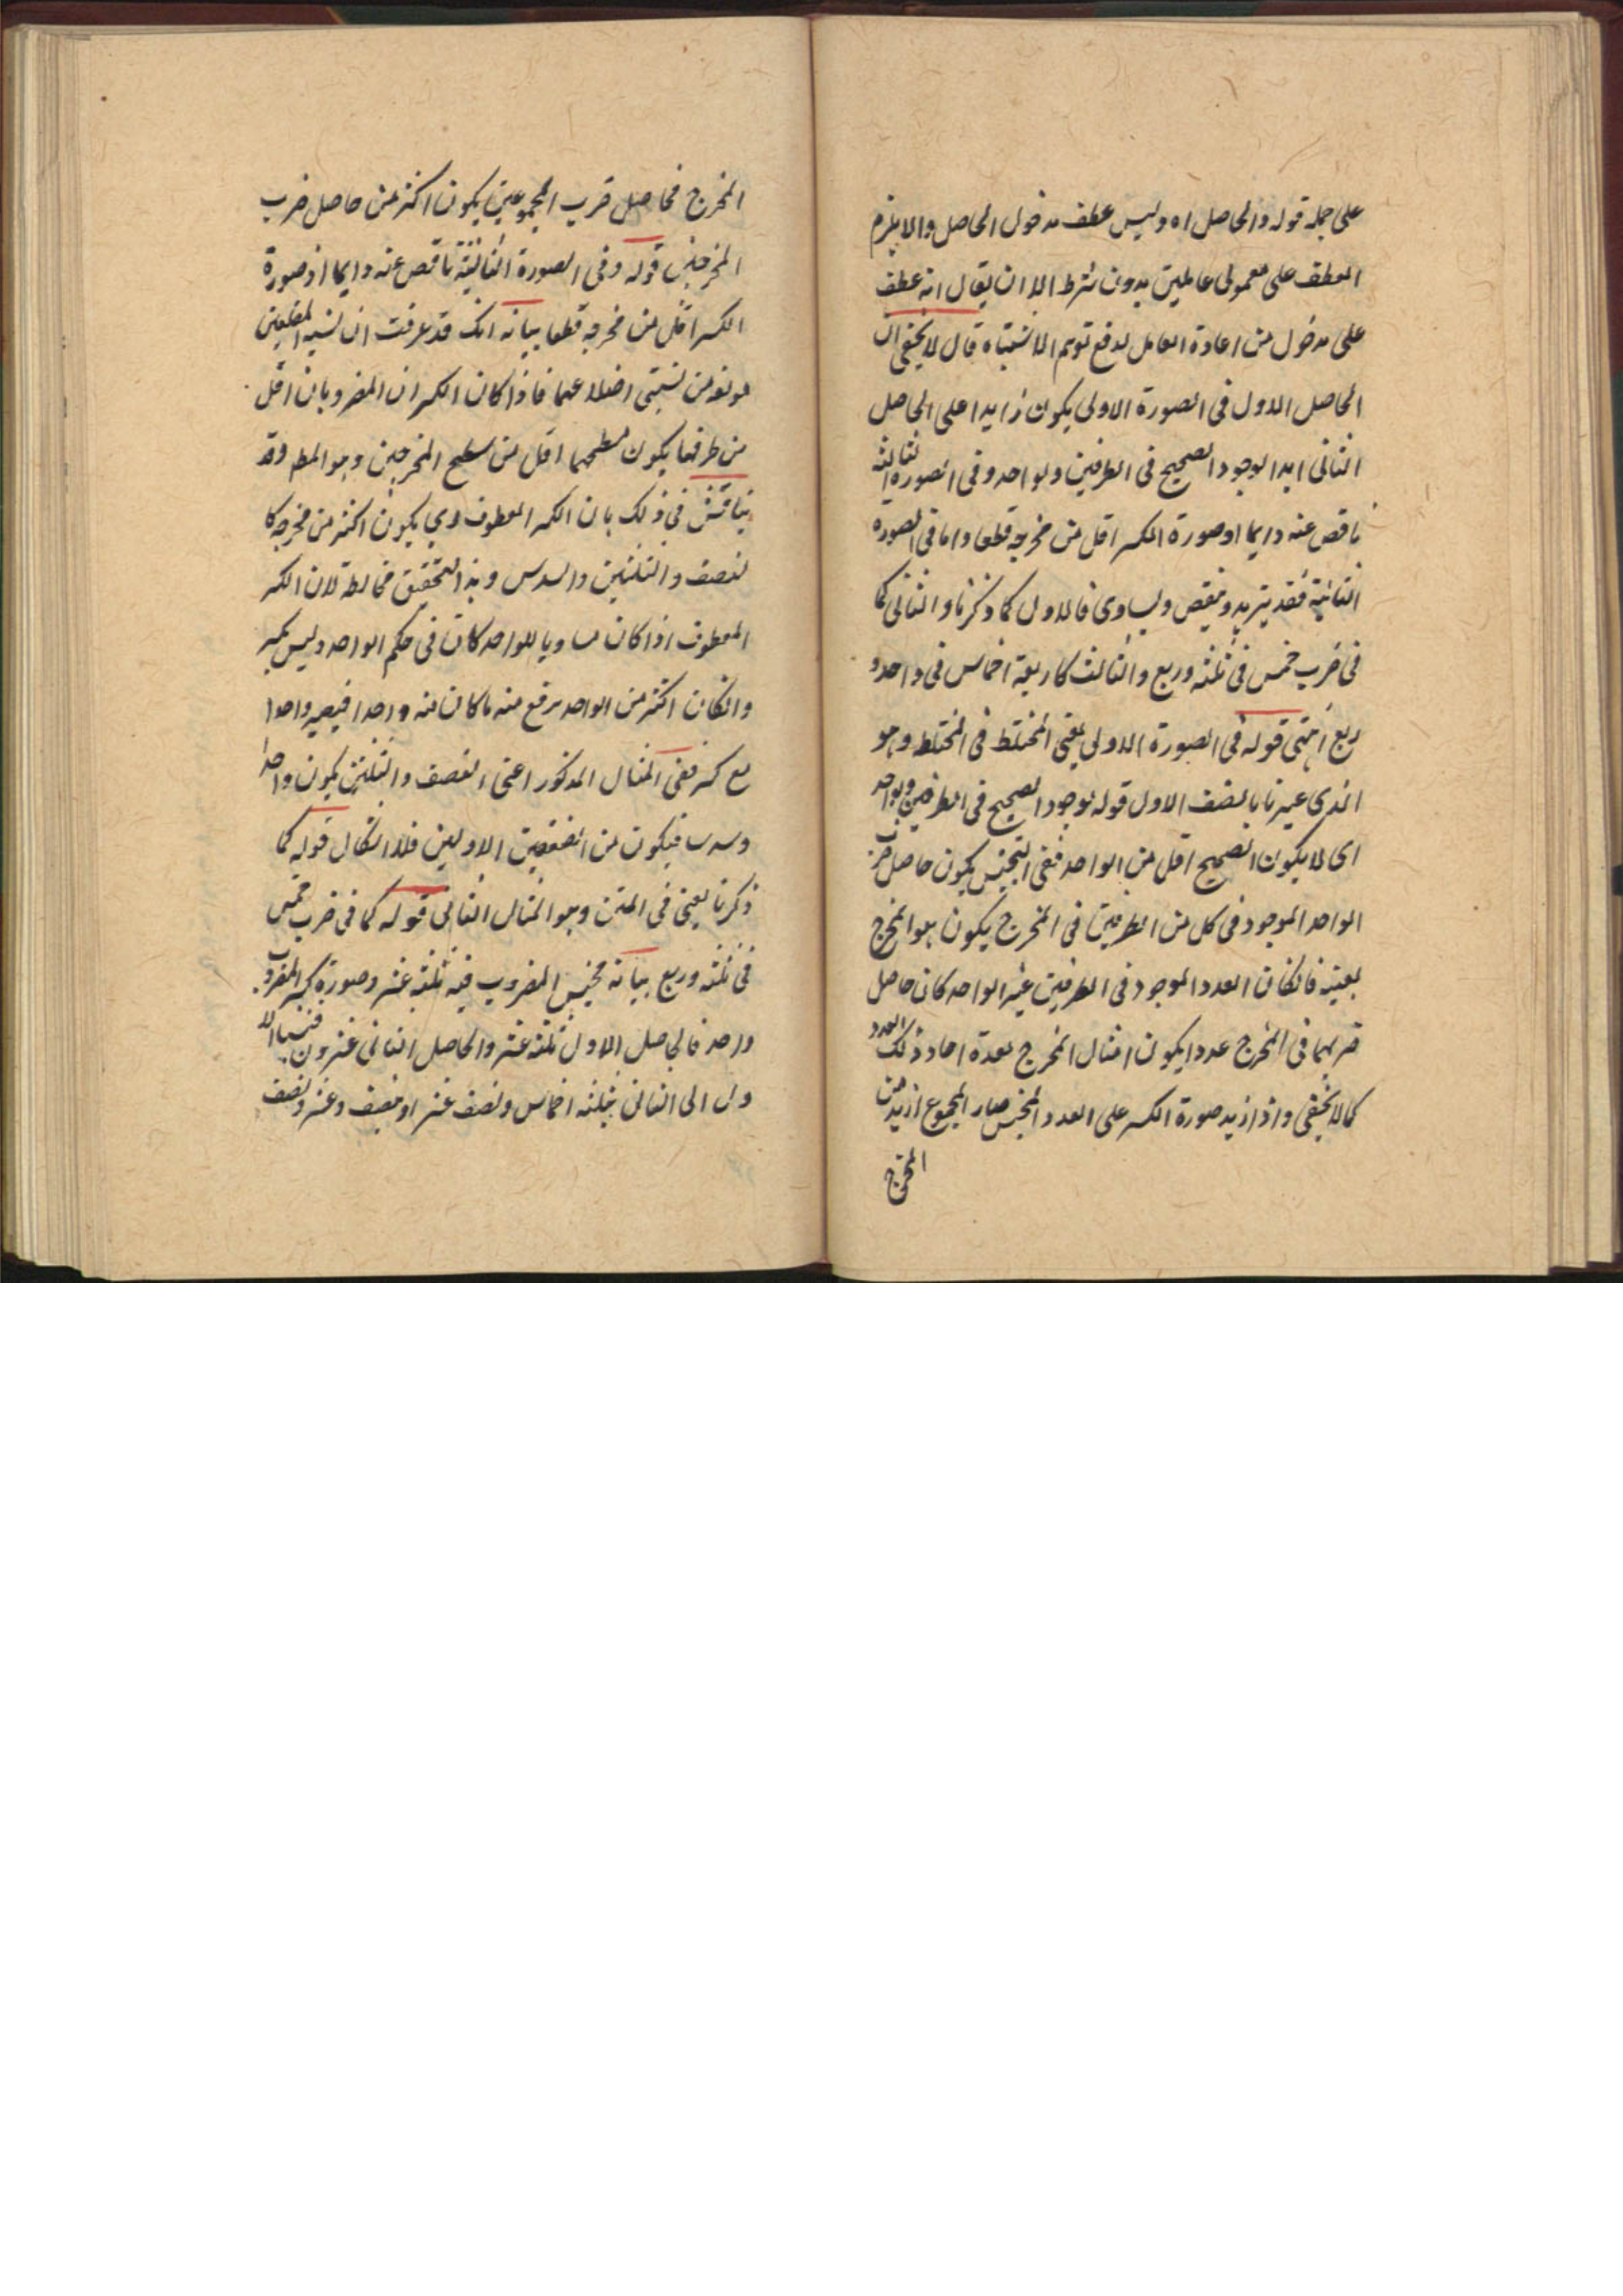 على جملة قوله والحاصل اه وليس عطف مدخول الحاصل والا يلزم
العطف على معمولى عاملين بدون شرط الا ان يقال انه عطف
على مدخول من اعادة العامل لدفع توهم الاشتباه قال لا يخفى ان
الحاصل الاول فى الصورة الاولى يكون زايدا على الحاصل
الثانى ابدا لوجود الصحيح فى الطرفين ولو واحد وفى الصورة الثالثة
ناقص عنه دايما اذ صورة الكسر اقل من مخرجه قطعا واما فى الصورة
الثانية فقد يزيد وينقص ويساوى فالاول كما ذكرنا والثانى كما
فى ضرب خمس فى ثلثه وربع والثالث كاربعة اخماس فى واحد و
ربع انتهى قوله فى الصورة الاولى يعنى المختلط فى المختلط وهو
الذى عبرنا بالصنف الاول قوله لوجود الصحيح فى الطرفين ولو واحد
اى لا يكون الصحيح اقل من الواحد ففى التجنيس يكون حاصل ضرب
الواحد الموجود فى كل من الطرفين فى المخرج يكون هو المخرج
بعينه فانكان العدد الموجود فى الطرفين غير الواحد كان حاصل
ضربهما فى المخرج عددا يكون امثال المخرج بعدة احاد ذلك العدد
كما لا يخفى واذا زيد صورة الكسر على العدد المجنس صار المجموع ازيد من
المخرج
المخرج فحاصل ضرب المجموعين يكون اكثر من حاصل ضرب
المخرجين قوله وفى الصورة الثالثة ناقص عنه دايما اذ صورة
الكسر اقل من مخرجه قطعا بيانه انك قد عرفت ان نسبة المسطحين
مولفة من نسبتى اضلاعهما فاذا كان الكسران المضروبان اقل
من طرفها يكون مسطحهما اقل من مسطح المخرجين وهو المط وقد
يناقش فى ذلك بان الكسر المعطوف يكون اكثر من مخرجه كا
لنصف والثلثين والسدس وبذ التحقق مخالطة لان الكسر
المعطوف اذا كان مساويا للواحد كان فى حكم الواحد وليس بكسر
وانكان اكثر من الواحد يرفع منه ما كان منه واحدا فيصير واحدا
مع كسر ففى المثال المذكور اعنى النصف والثلثين يكون واحدا
وسدسا فيكون من الصنفين الاولين فلا اشكال قوله كما
ذكرنا يعنى فى المتن وهو المثال الثانى قوله كما فى ضرب خمس
فى ثلثه وربع بيانه مجنس المضروب فيه ثلثه عشر وصورة كسر المضروب
واحد فالحاصل الاول ثلثه عشر والحاصل الثانى عشرون فنسبة الا
ول الى الثانى بثلثه اخماس ونصف عشر او نصف وعشر ونصف